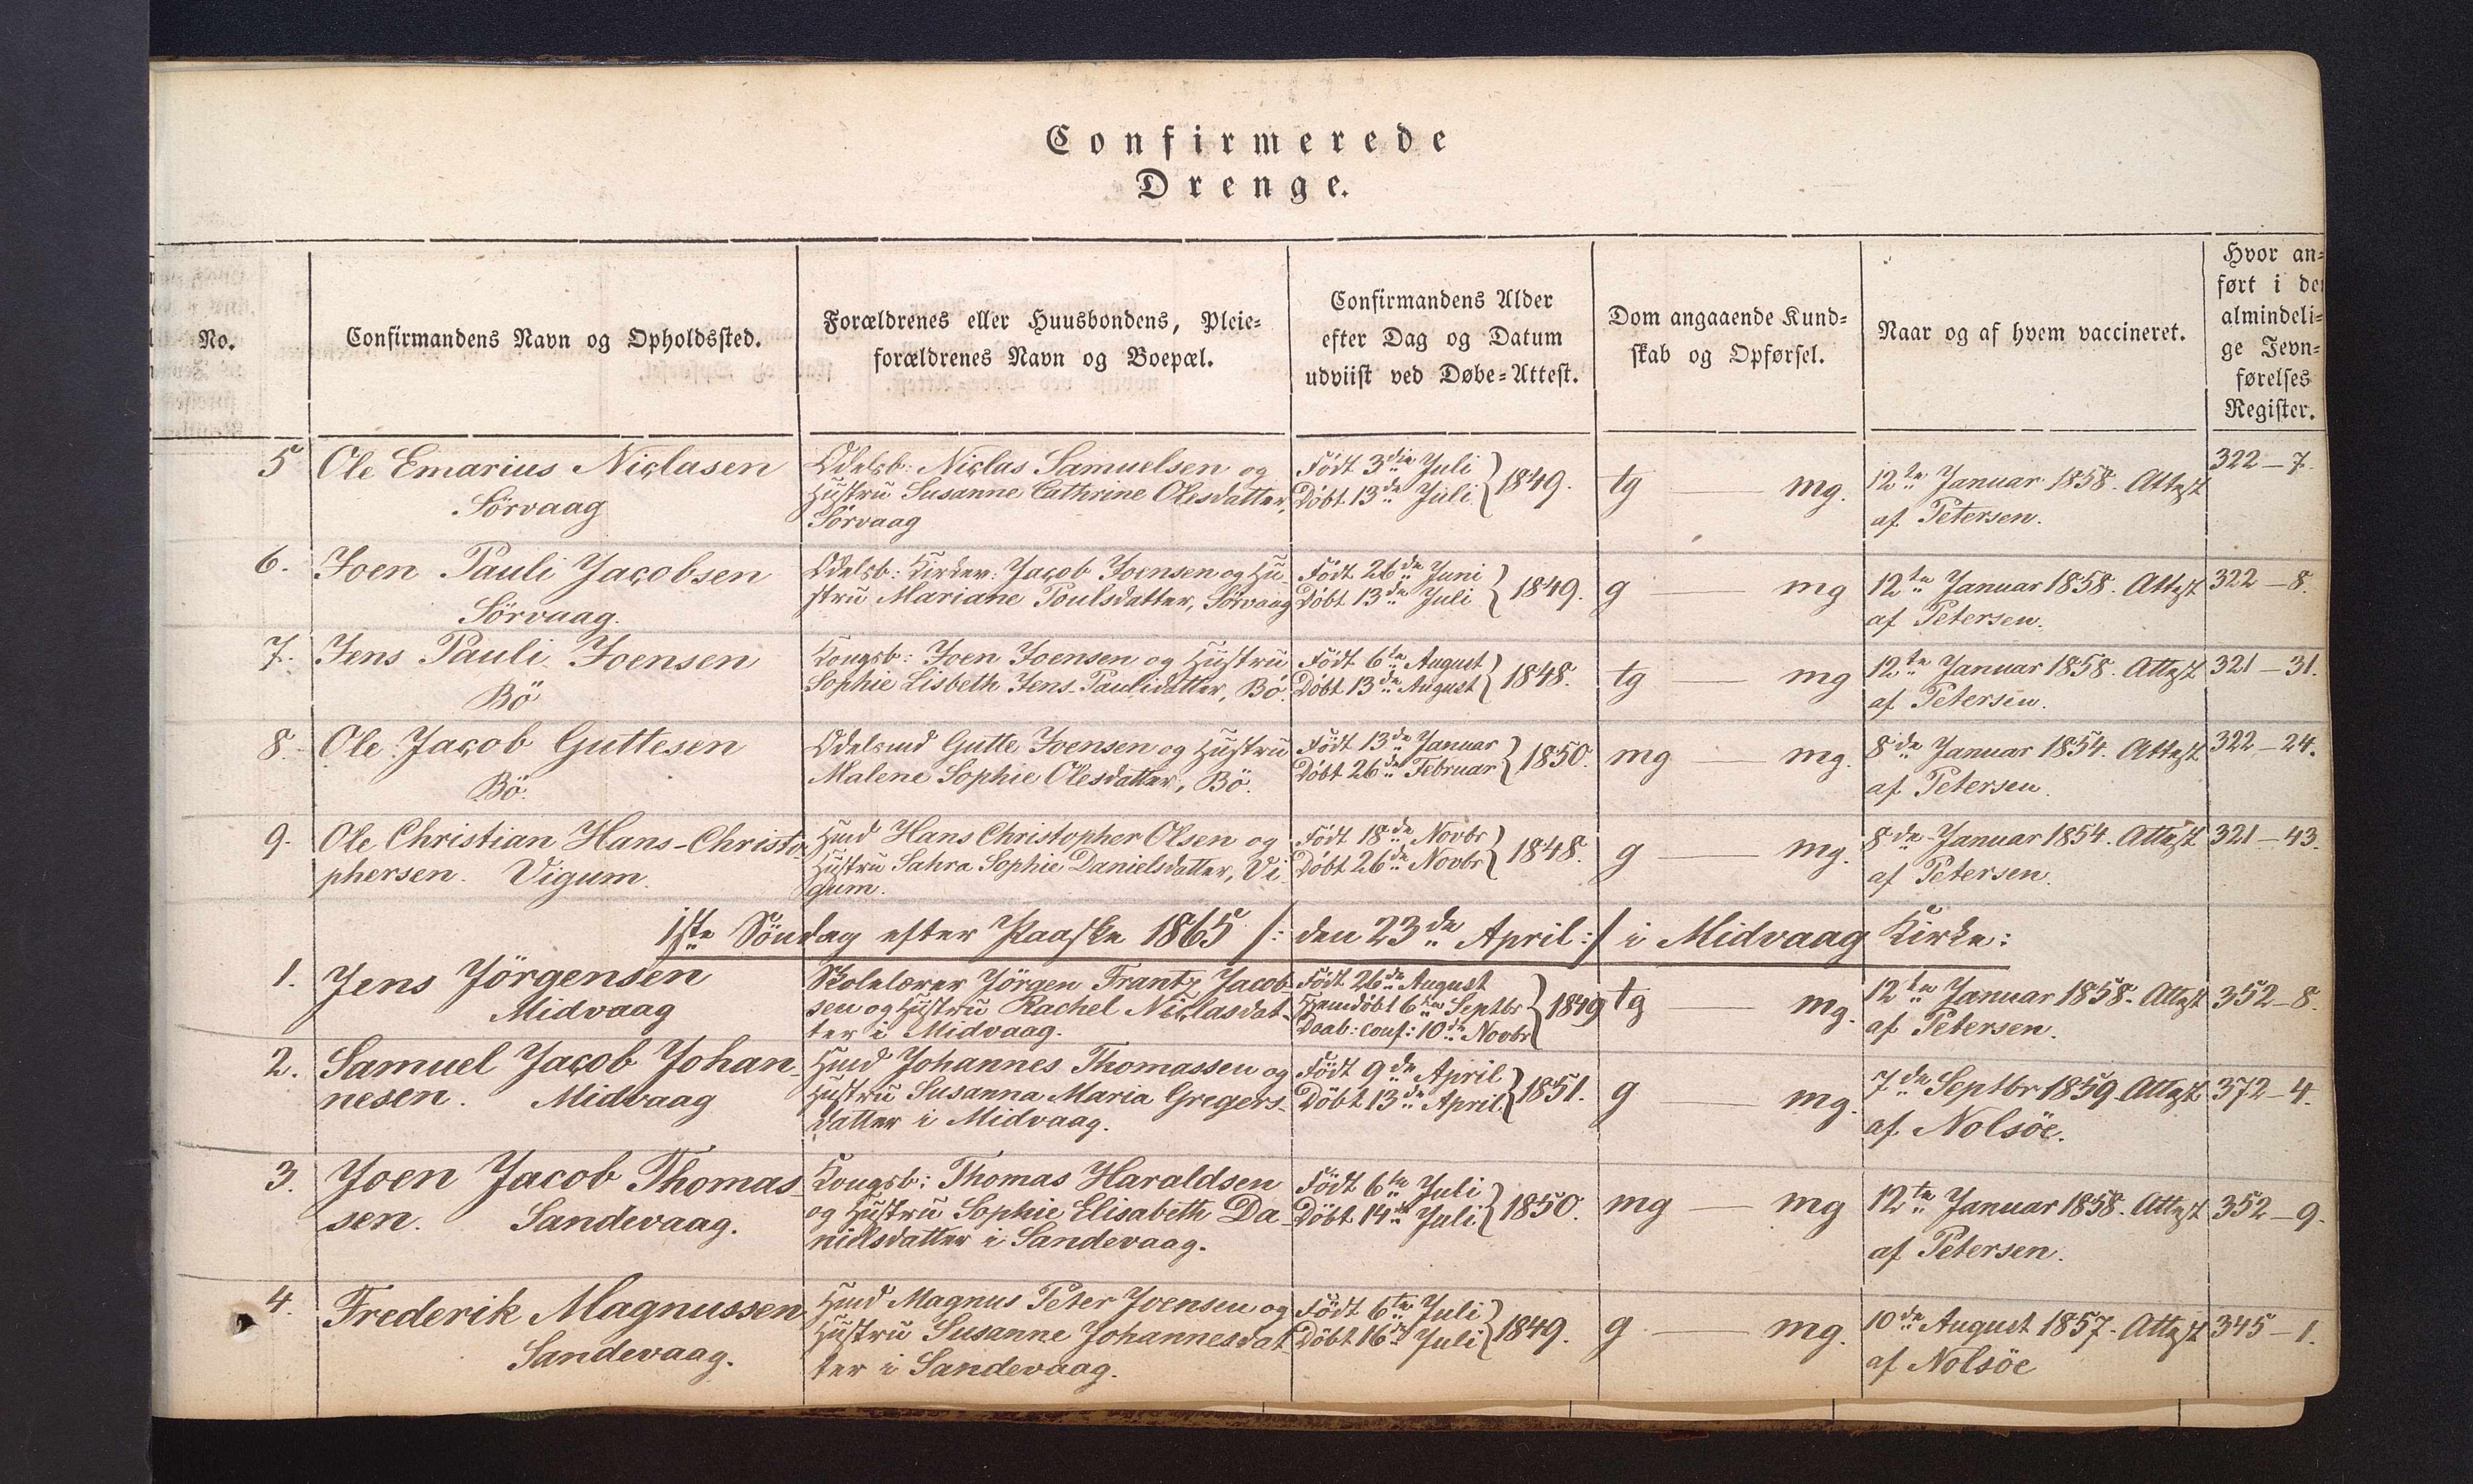 Confirmerede
Drenge.
No.
Confirmandens Navn og Opholdssted.
Forældrenes eller Huusbondens, Pleie-
forældrenes Navn og Boepæl.
Confirmandens Alder
efter Dag og Datum
udviist ved Døbe-Attest.
Dom angaaende Kund-
skab og Opførsel.
Naar og af hvem vaccineret.
Hvor an-
ført i de
almindeli-
ge Jevn-
førelses
Register.
5 Ole Emarius Niclasen
Sörvaag
Odelsb: Niclas Samuelsen og
Hustru Susanne Cathrine Olesdatter,
Sörvaag
Födt 3die Juli
Döbt 13de Juli } 1849.
tg — mg.
12te Januar 1858. Attest
af Petersen.
322 — 7.
6. Joen Pauli Jacobsen
Sörvaag.
Odelsb: Kirkev: Jacob Joensen og Hu-
stru Mariane Poulsdatter, Sörvaag
Födt 26de Juni
Döbt 13de Juli } 1849.
g — mg
12te Januar 1858. Attest
af Petersen.
322 — 8.
7. Jens Pauli Joensen
Bö
Kongsb: Joen Joensen og Hustru
Sophie Lisbeth Jens-Paulidatter, Bö.
Födt 6te August
Döbt 13de August } 1848.
tg — mg
12te Januar 1858. Attest
af Petersen.
321 — 31.
8. Ole Jacob Guttesen
Bö.
Odelsmd Gutte Joensen og Hustru
Malene Sophie Olesdatter, Bö.
Födt 13de Januar
Döbt 26de Februar } 1850.
mg — mg.
8de Januar 1854. Attest
af Petersen.
322 — 24.
9. Ole Christian Hans-Christo-
phersen. Vigum.
Hmd Hans Christopher Olsen og
Hustru Sahra Sophie Danielsdatter, Vi-
gum.
Födt 18de Novbr
Döbt 26de Novbr } 1848.
g — mg.
8de Januar 1854. Attest
af Petersen.
321 — 43.
1ste Söndag efter Paaske 1865 /: den 23de April :/ i Midvaag Kirke:
1. Jens Jörgensen
Midvaag
Skolelærer Jörgen Frantz Jacob-
sen og Hustru Rachel Niclasdat-
ter i Midvaag.
Födt 26de August
Hjemdöbt 6te Septbr
Daab: conf: 10de Novbr } 1849
tg — mg.
12te Januar 1858. Attest
af Petersen.
352 — 8.
2. Samuel Jacob Johan-
nesen. Midvaag
Hmd Johannes Thomassen og
Hustru Susanna Maria Gregers-
datter i Midvaag.
Födt 9de April
Döbt 13de April } 1851.
g — mg.
7de Septbr 1859. Attest
af Nolsöe.
372 — 4.
3. Joen Jacob Thomas-
sen. Sandevaag.
Kongsb: Thomas Haraldsen
og Hustru Sophie Elisabeth Da-
nielsdatter i Sandevaag.
Födt 6te Juli
Döbt 14de Juli } 1850.
mg — mg
12te Januar 1858. Attest
af Petersen.
352 — 9.
4. Frederik Magnussen
Sandevaag.
Hmd Magnus Peter Joensen og
Hustru Susanne Johannesdat-
ter i Sandevaag.
Födt 6te Juli
Döbt 16de Juli } 1849.
g — mg.
10de August 1857. Attest
af Nolsöe
345 — 1.